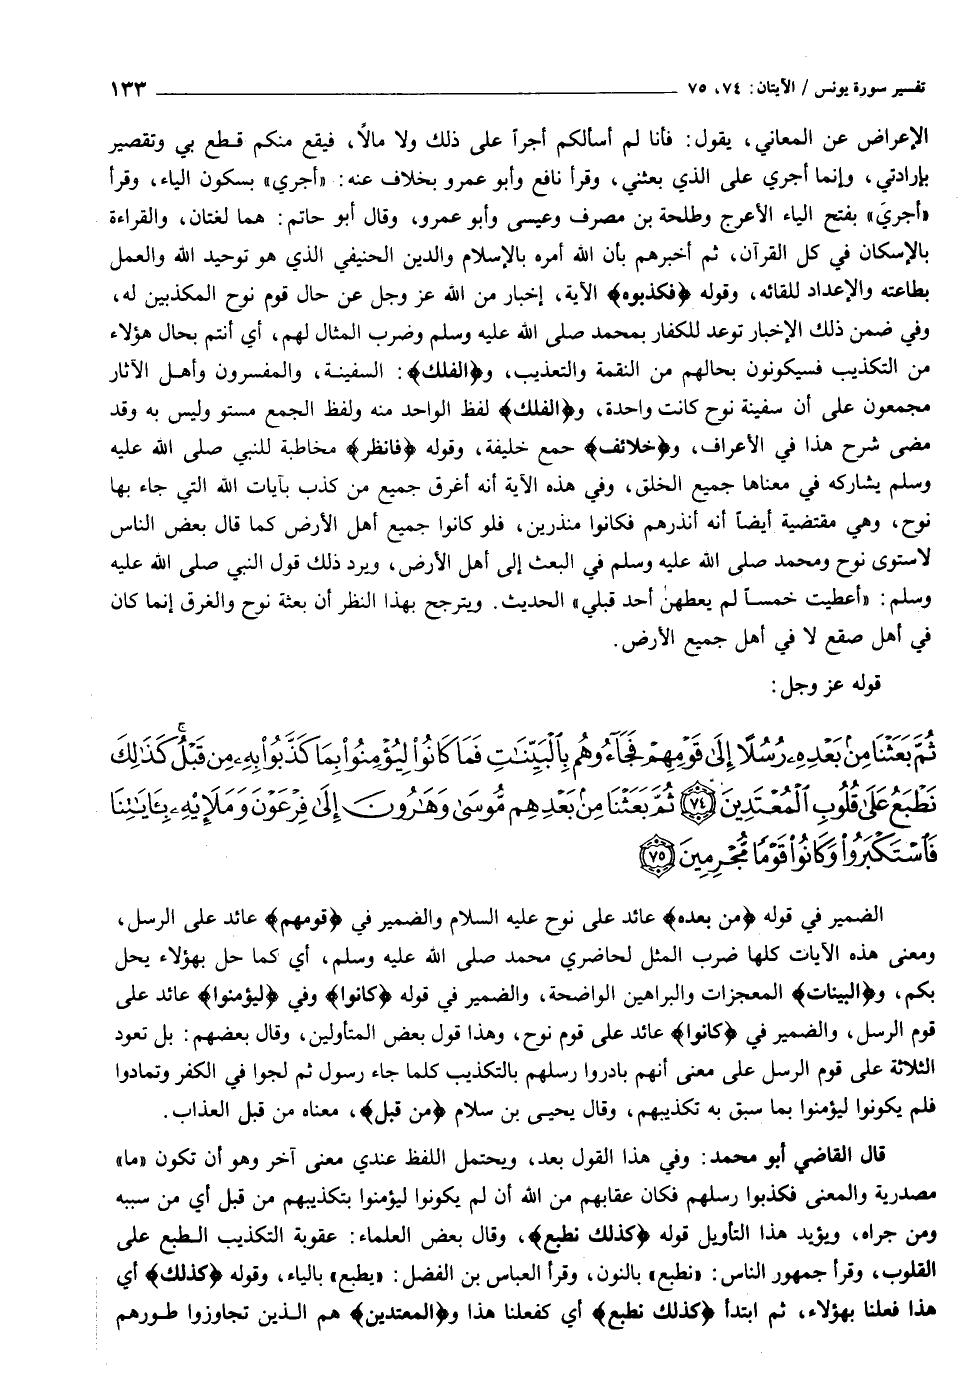 تفسير سورة يونس / الآيتان: ٧٤، ٧٥ ١٣٣
الإعراض عن المعاني، يقول: فأنا لم أسألكم أجراً على ذلك ولا مالاً، فيقع منكم قـطع بي وتقصير
بإرادتي، وإنما أجري على الذي بعثني، وقرأ نافع وأبو عمرو بخلاف عنه: «أجري» بسكون الياء، وقرأ
«أجريَ» بفتح الياء الأعرج وطلحة بن مصرف وعيسى وأبو عمرو، وقال أبو حاتم: هما لغتان، والقراءة
بالإسكان في كل القرآن، ثم أخبرهم بأن الله أمره بالإسلام والدين الحنيفي الذي هو توحيد الله والعمل
بطاعته والإعداد للقائه، وقوله ﴿فكذبوه﴾ الآية، إخبار من الله عز وجل عن حال قوم نوح المكذبين له،
وفي ضمن ذلك الإخبار توعد للكفار بمحمد صلى الله عليه وسلم وضرب المثال لهم، أي أنتم بحال هؤلاء
من التكذيب فسيكونون بحالهم من النقمة والتعذيب، و﴿الفلك﴾: السفينـة، والمفسرون وأهـل الآثار
مجمعون على أن سفينة نوح كانت واحدة، و﴿الفلك﴾ لفظ الواحد منه ولفظ الجمع مستو وليس به وقد
مضى شرح هذا في الأعراف، و﴿خلائف﴾ حمع خليفة، وقوله ﴿فانظر﴾ مخاطبة للنبي صلى الله عليه
وسلم يشاركه في معناها جميع الخلق، وفي هذه الآية أنه أغرق جميع من كذب بآيات الله التي جاء بها
نوح، وهي مقتضية أيضاً أنه أنذرهم فكانوا منذرين، فلو كانوا جميع أهل الأرض كما قال بعض الناس
لاستوى نوح ومحمد صلى الله عليه وسلم في البعث إلى أهل الأرض، ويرد ذلك قول النبي صلى الله عليه
وسلم: «أعطيت خمسـاً لم يعطهن أحد قبلي» الحديث. ويترجح بهذا النظر أن بعثة نوح والغرق إنما كان
في أهل صقع لا في أهل جميع الأرض.
قوله عز وجل:
ثُمَّ بَعَثْنَا مِنۢ بَعْدِهِۦ رُسُلًا إِلَىٰ قَوْمِهِمْ فَجَآءُوهُم بِٱلْبَيِّنَـٰتِ فَمَا كَانُوا۟ لِيُؤْمِنُوا۟ بِمَا كَذَّبُوا۟ بِهِۦ مِن قَبْلُ ۚ كَذَٰلِكَ
نَطْبَعُ عَلَىٰ قُلُوبِ ٱلْمُعْتَدِينَ ﴿٧٤﴾ ثُمَّ بَعَثْنَا مِنۢ بَعْدِهِم مُّوسَىٰ وَهَـٰرُونَ إِلَىٰ فِرْعَوْنَ وَمَلَإِي۟هِۦ بِـَٔايَـٰتِنَا
فَٱسْتَكْبَرُوا۟ وَكَانُوا۟ قَوْمًا مُّجْرِمِينَ ﴿٧٥﴾
الضمير في قوله ﴿من بعده﴾ عائد على نوح عليه السلام والضمير في ﴿قومهم﴾ عائد على الرسل،
ومعنى هذه الآيات كلها ضرب المثل لحاضري محمد صلى الله عليه وسلم، أي كما حل بهؤلاء يحل
بكم، و﴿البينات﴾ المعجزات والبراهين الواضحة، والضمير في قوله ﴿كانوا﴾ وفي ﴿ليؤمنوا﴾ عائد على
قوم الرسل، والضمير في ﴿كانوا﴾ عائد على قوم نوح، وهذا قول بعض المتأولين، وقال بعضهم: بل تعود
الثلاثة على قوم الرسل على معنى أنهم بادروا رسلهم بالتكذيب كلما جاء رسول ثم لجوا في الكفر وتمادوا
فلم يكونوا ليؤمنوا بما سبق به تكذيبهم، وقال يحيـى بن سلام ﴿من قبل﴾، معناه من قبل العذاب.
قال القاضي أبو محمد: وفي هذا القول بعد، ويحتمل اللفظ عندي معنى آخر وهو أن تكون «ما»
مصدرية والمعنى فكذبوا رسلهم فكان عقابهم من الله أن لم يكونوا ليؤمنوا بتكذيبهم من قبل أي من سببه
ومن جراه، ويؤيد هذا التأويل قوله ﴿كذلك نطبع﴾، وقال بعض العلماء: عقوبة التكذيب الـطبع على
القلوب، وقرأ جمهور الناس: «نطبع» بالنون، وقرأ العباس بن الفضل: «يطبع» بالياء، وقوله ﴿كذلك﴾ أي
هذا فعلنا بهؤلاء، ثم ابتدأ ﴿كذلك نطبع﴾ أي كفعلنا هذا و﴿المعتدين﴾ هم الـذين تجاوزوا طـورهم